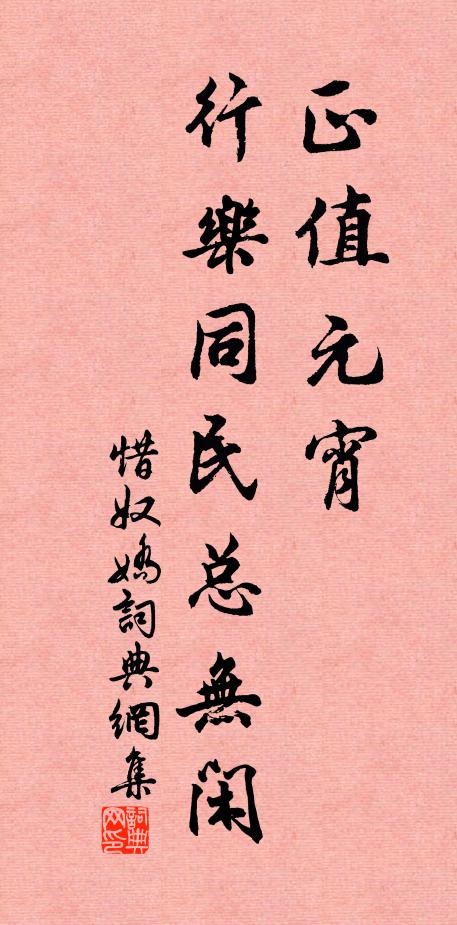 正值元宵
行樂同民总無闲
惜奴嬌詞典網集
詞典網印